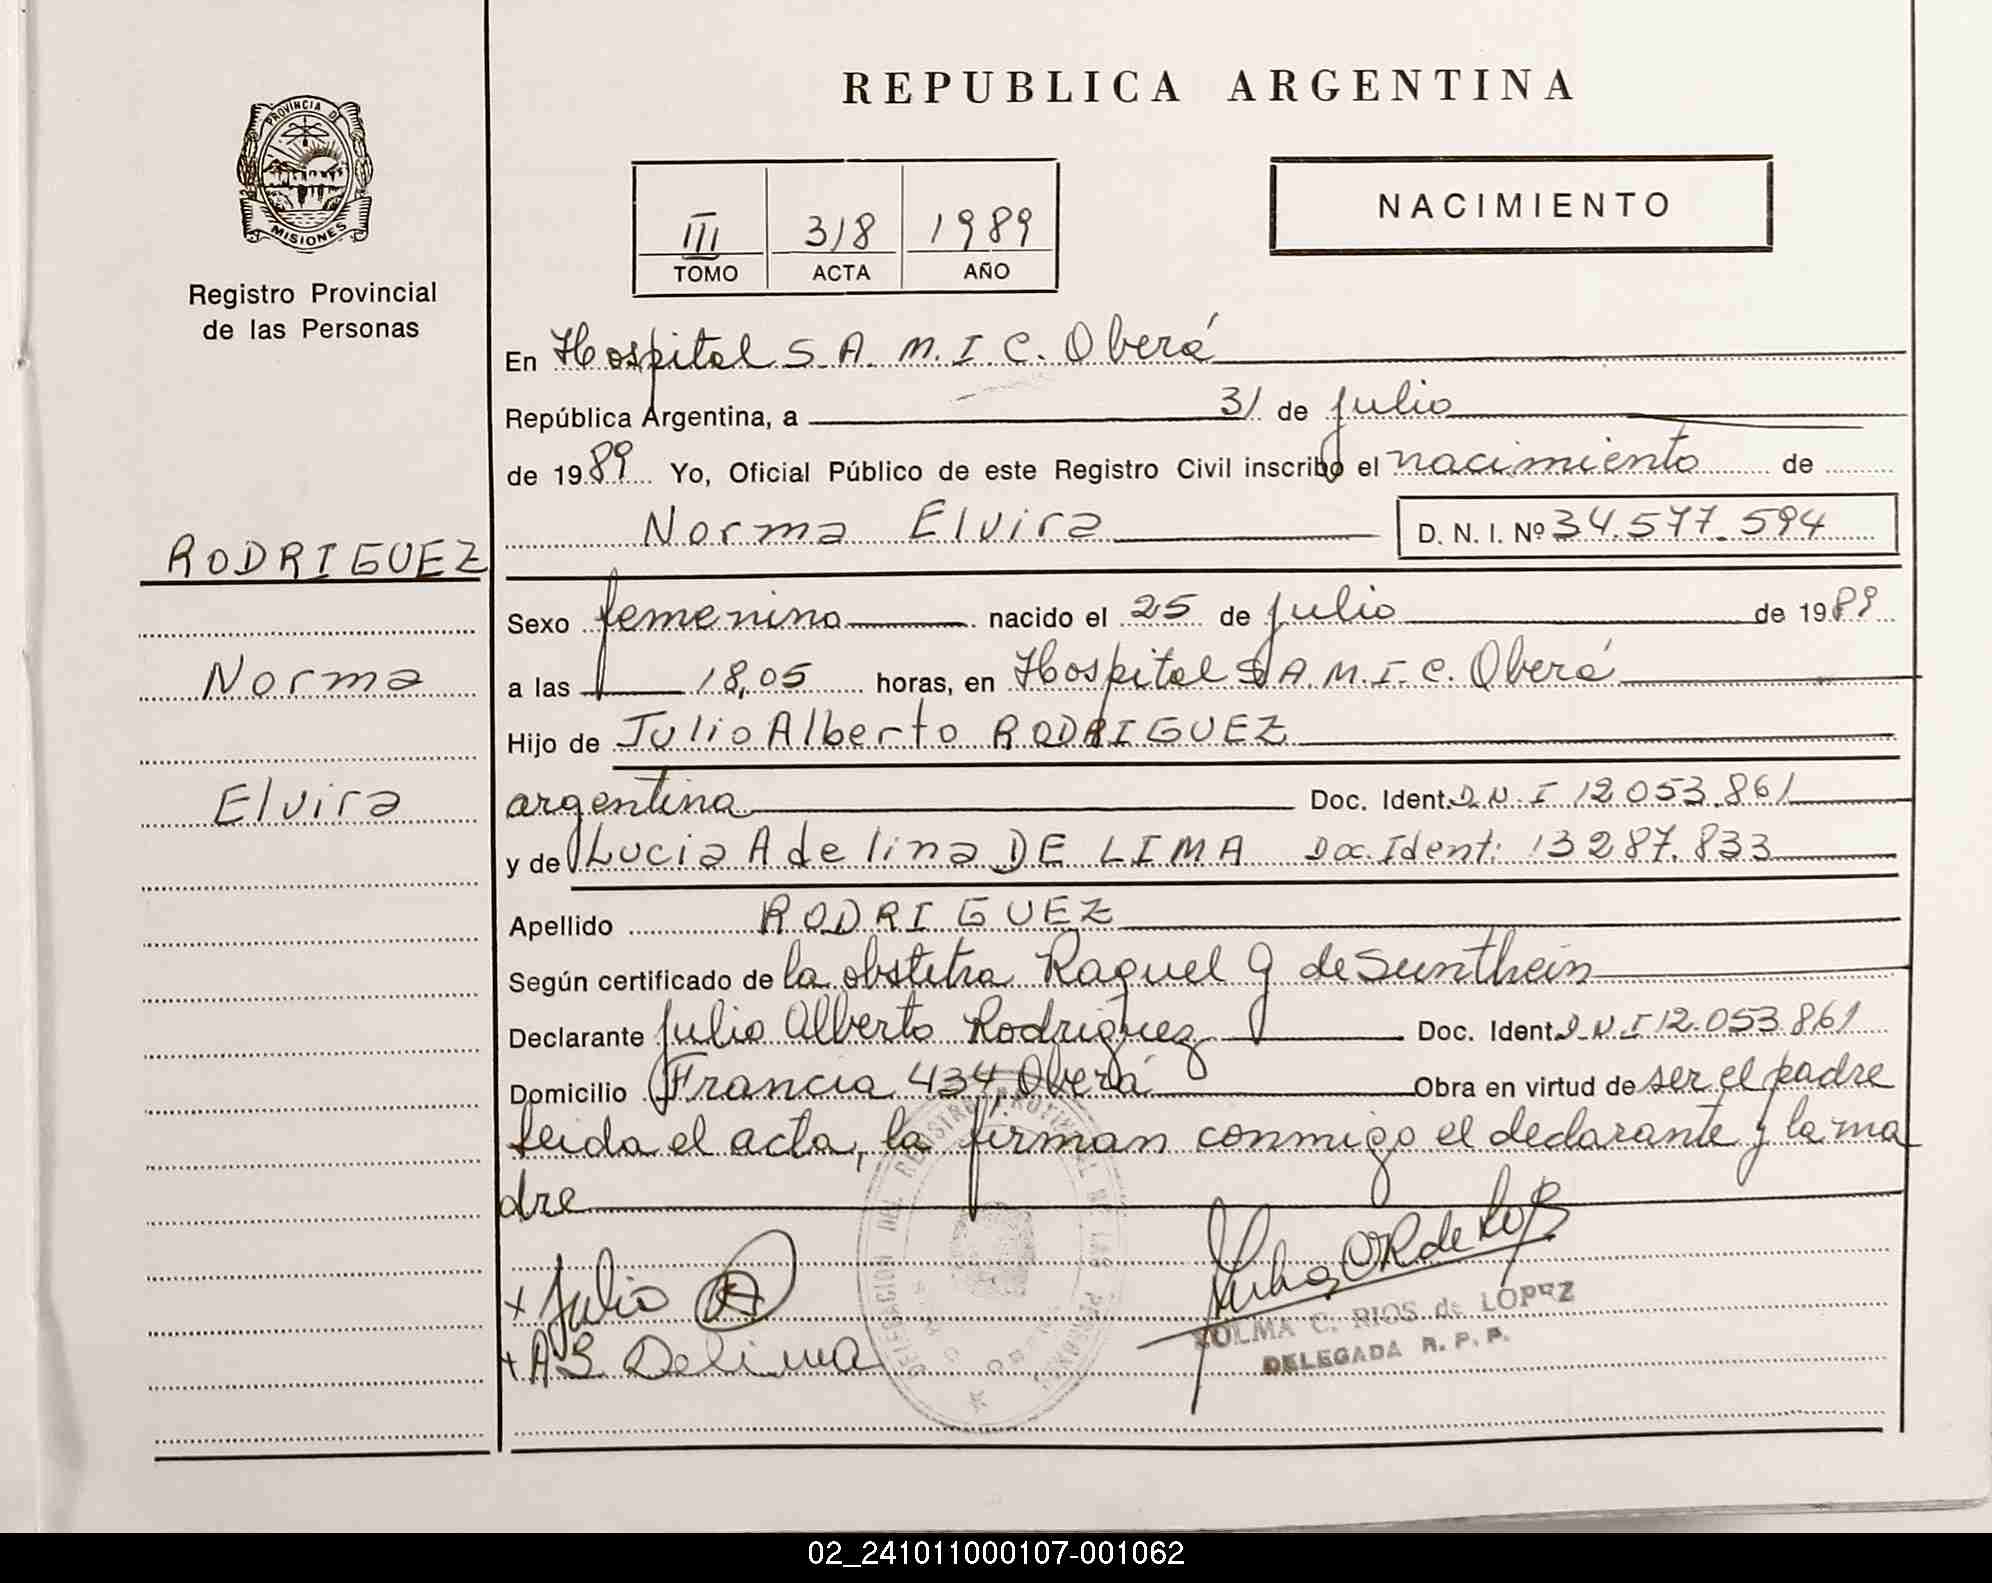 REPUBLICA ARGENTINA
PROVINCIA DE
MISIONES
Registro Provincial
de las Personas
III 318 1989
TOMO ACTA AÑO
NACIMIENTO
En Hospital S.A.M.I.C. Oberá
República Argentina, a 31 de julio
de 1989 Yo, Oficial Público de este Registro Civil inscribo el nacimiento de
Norma Elvira D. N. I. Nº 34.577.594
RODRIGUEZ
Norma
Elvira
Sexo femenino nacido el 25 de julio de 1989
a las 18,05 horas, en Hospital S.A.M.I.C. Oberá
Hijo de Julio Alberto RODRIGUEZ
argentina Doc. Ident. D.N.I 12.053.861
y de Lucia Adelina DE LIMA Doc. Ident: 13287.833
Apellido RODRIGUEZ
Según certificado de la obstetra Raquel G de Sunthein
Declarante Julio Alberto Rodriguez Doc. Ident. D.N.I 12.053.861
Domicilio Francia 434, Oberá Obra en virtud de ser el padre
leida el acta, la firman conmigo el declarante y la ma
dre
DELEGACION DEL REGISTRO PROVINCIAL DE LAS PERSONAS
x Julio
+ A L Delima
C. RIOS de LOPEZ
DELEGADA R. P. P.
02_241011000107-001062